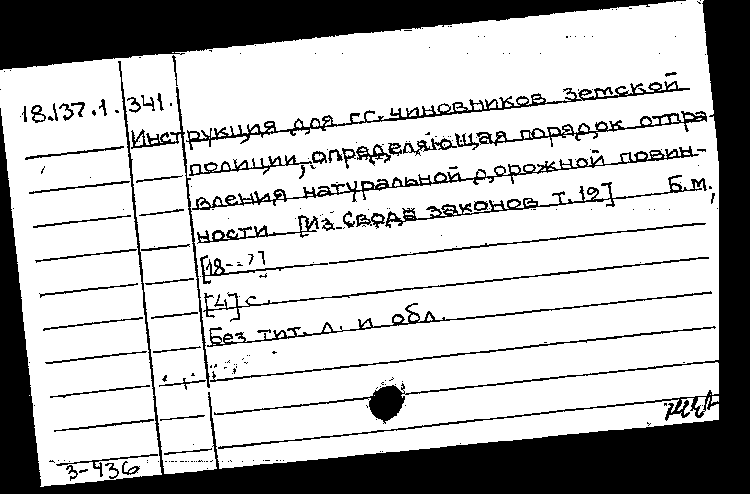 18.137.1.341.
Инструкция для г.г. чиновников земской
полиции, определяющая порядок отпра-
вления натуральной дорожной повин-
ности. [Из Свода законов т. 12] Б.м.,
[18--?]
[4] с.
Без тит. л. и обл.
3-436